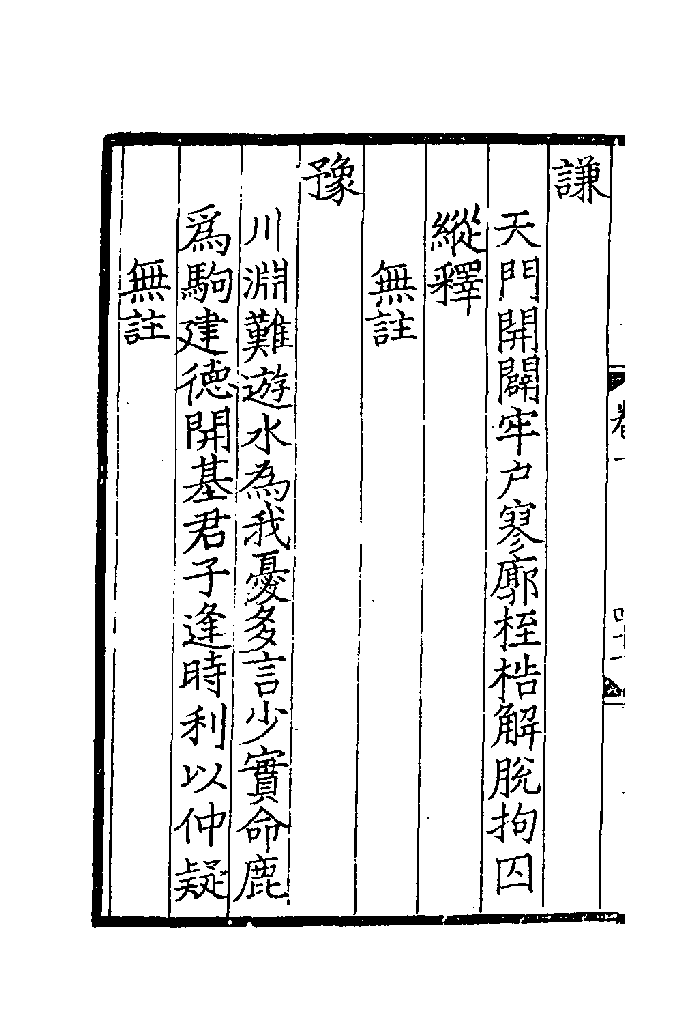 謙
天門開闢牢户寥廓桎梏解脫拘囚
縱釋
無註
豫
川淵難遊水為我憂多言少實命鹿
爲駒建德開基君子逢時利以仲疑
無註